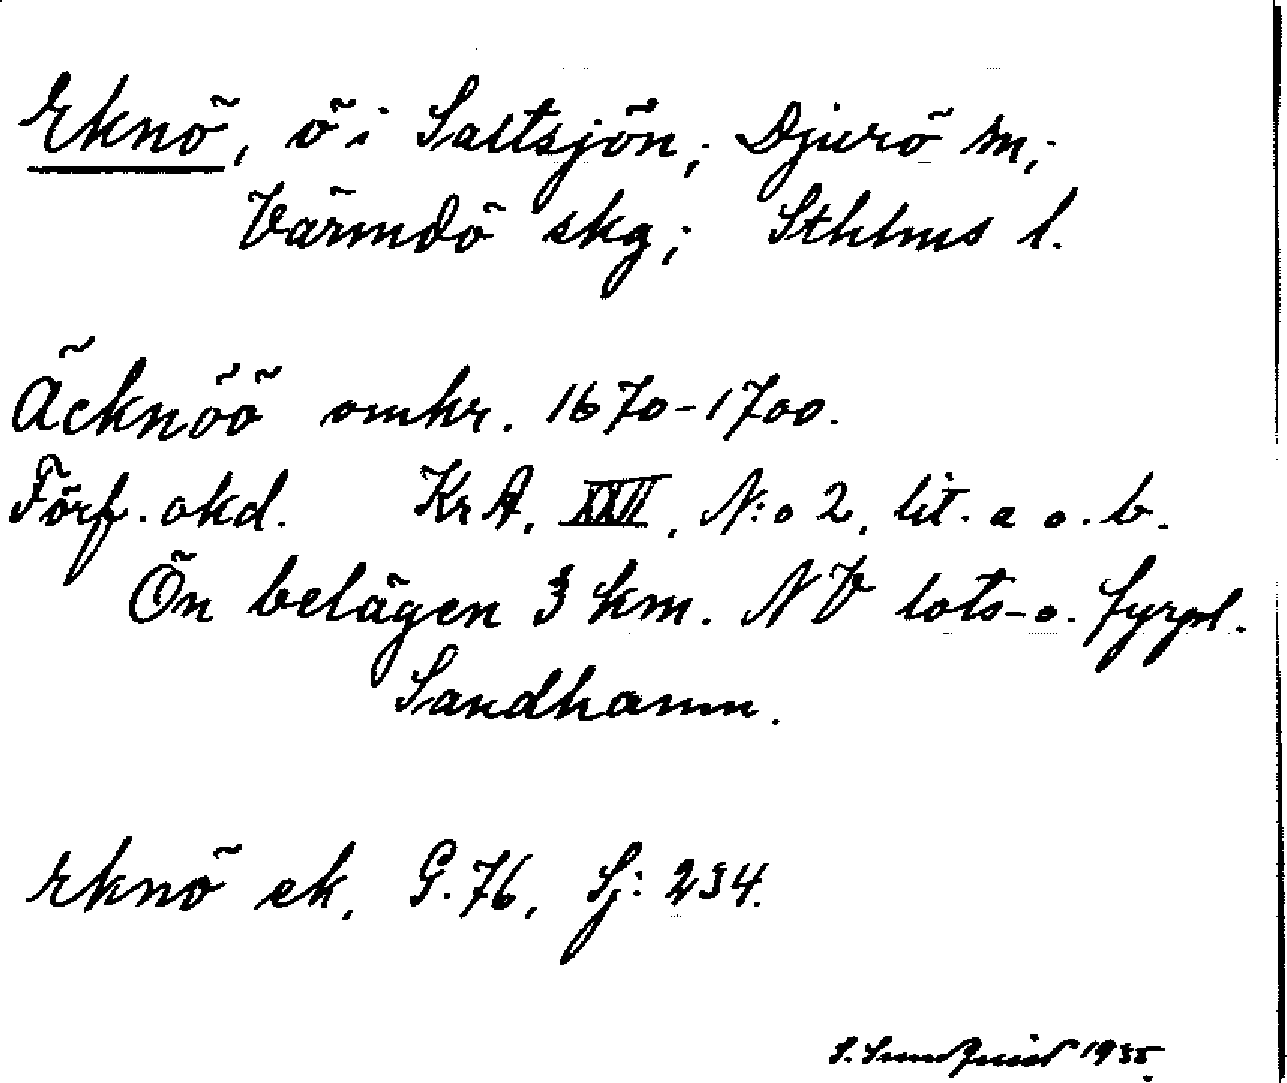 Eknö, ö i Saltsjön; Djurö sn;
Värmdö skg; Sthlms l.
Äcknöö omkr. 1670-1700.
Förf. okd. KrA. XXVI, N:o 2, lit. a o. b.
Ön belägen 3 km. NV lots- o. fyrpl.
Sandhamn.
Eknö ek. G. 76, Sj: 234.
S. Sundquist 1935.